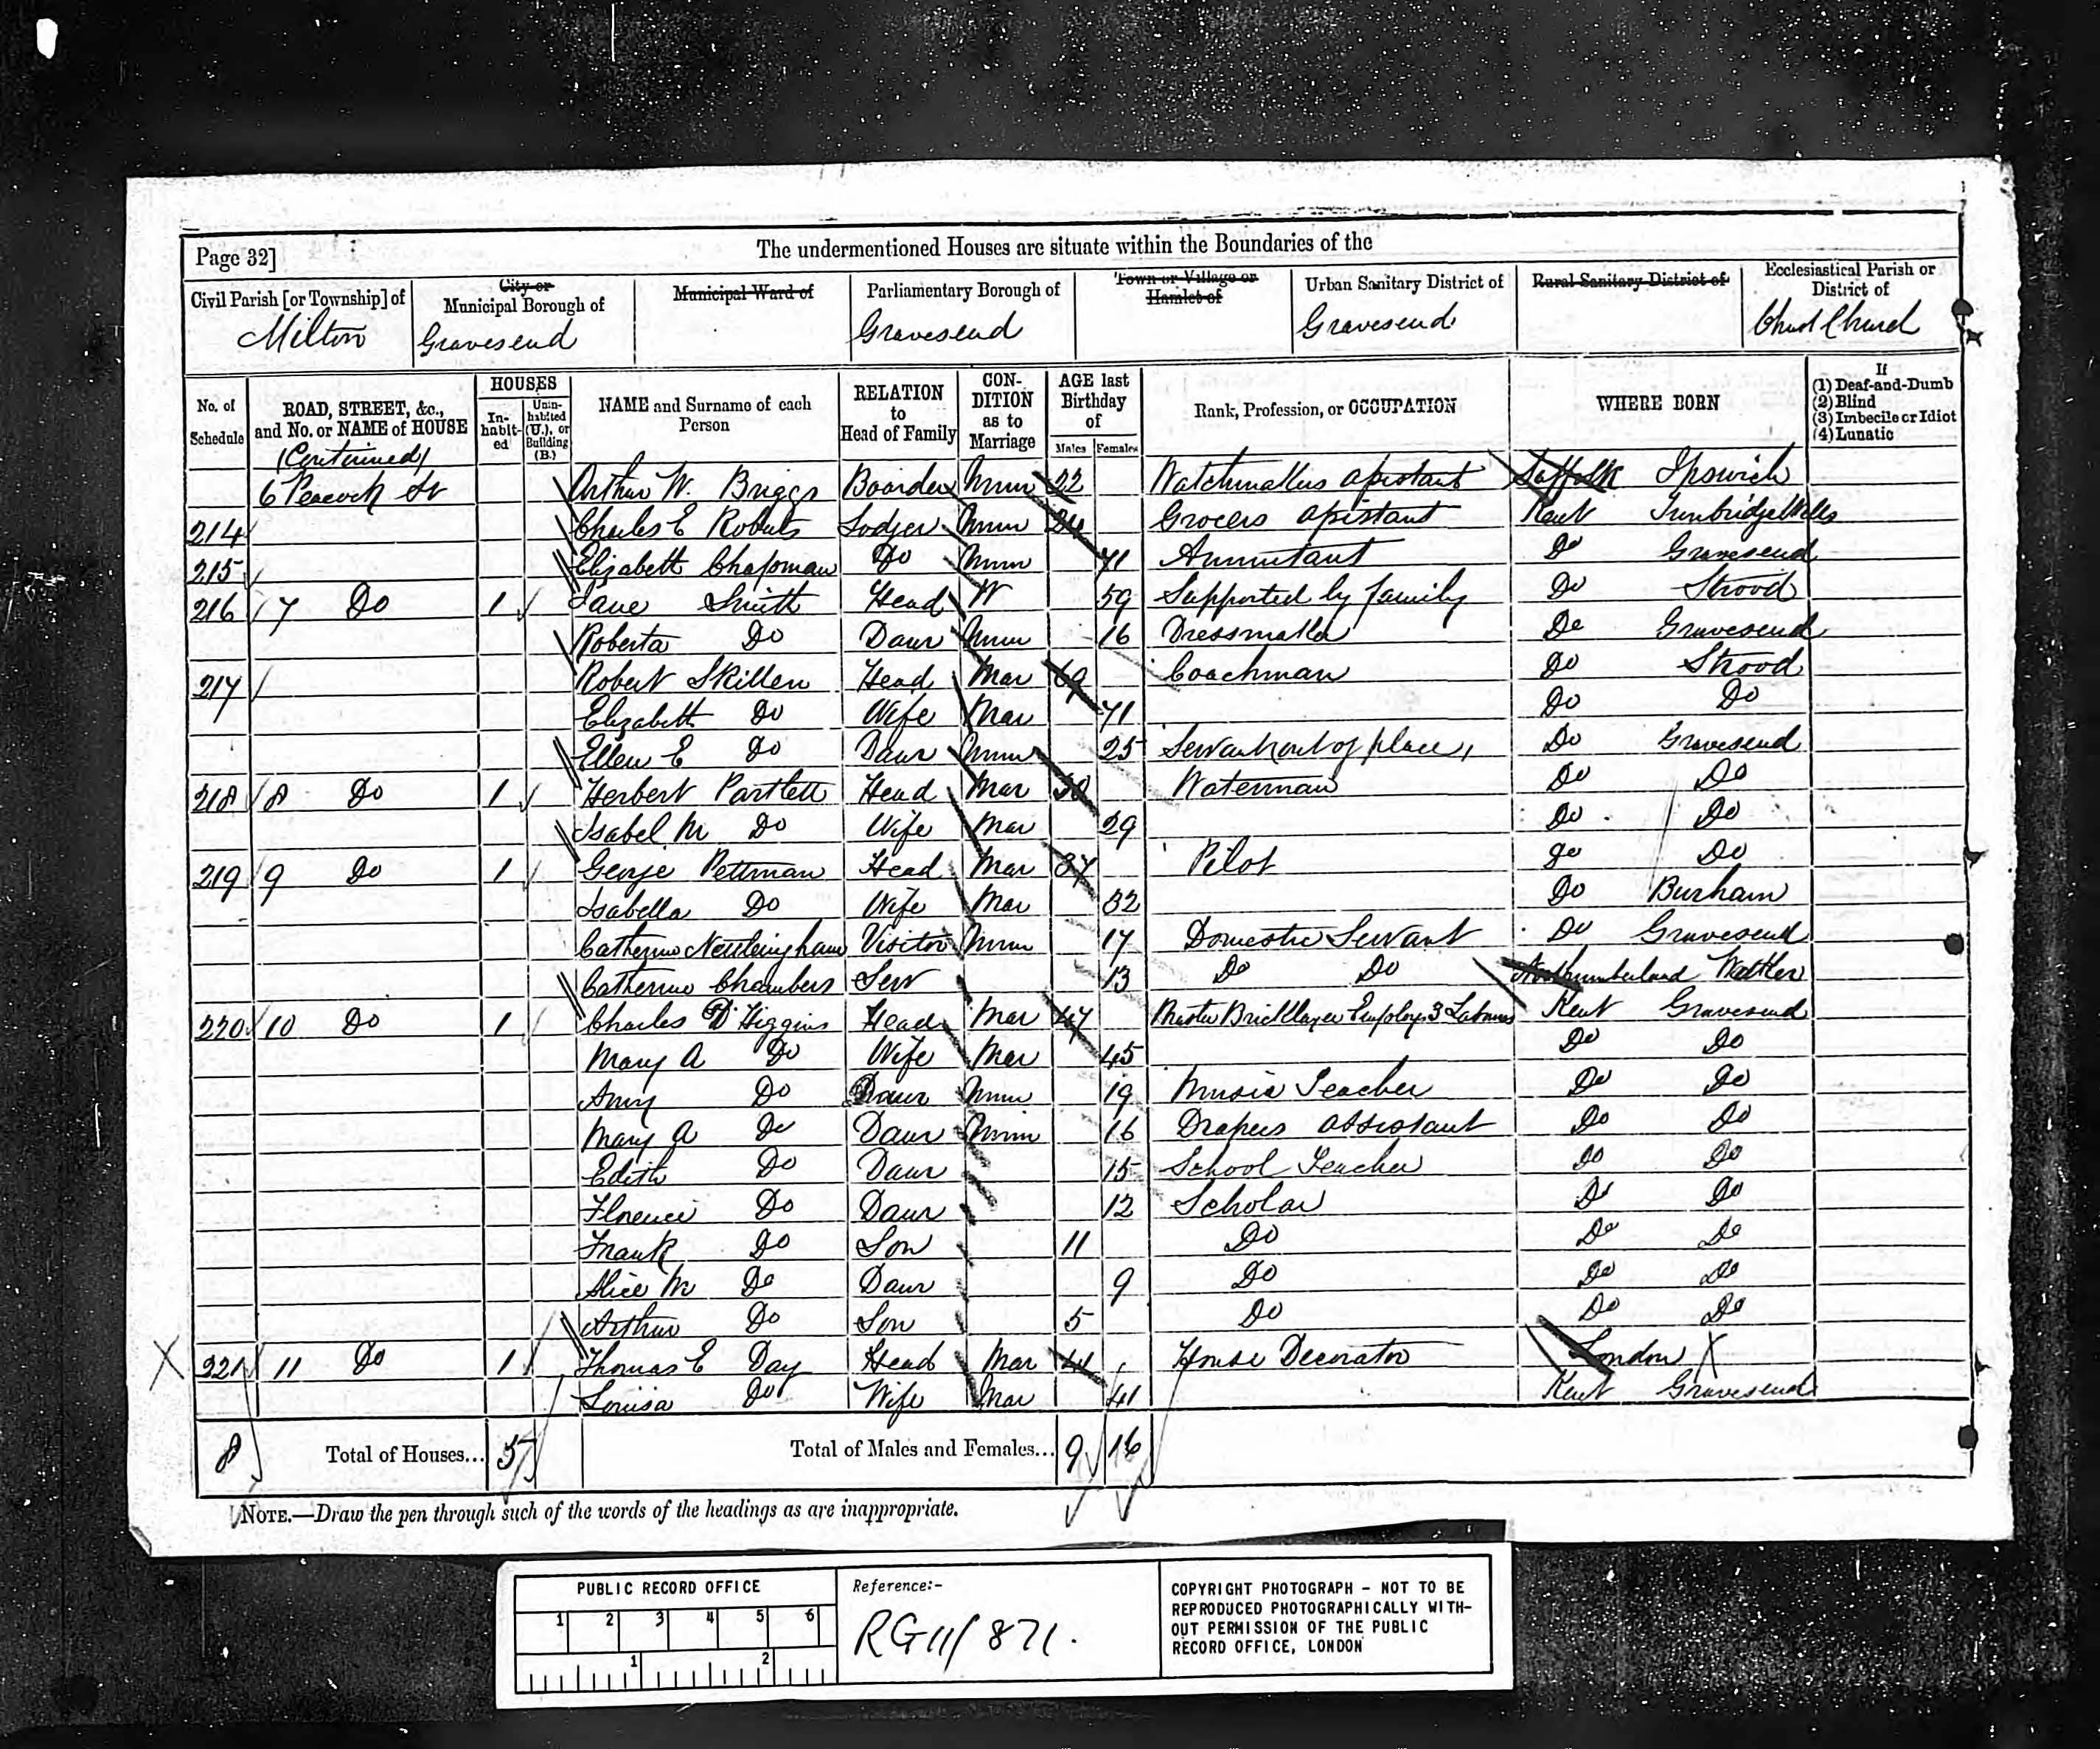 Page 32]
The undermentioned Houses are situate within the Boundaries of the
Civil Parish [or Township] of
Milton
City or
Municipal Borough of
Gravesend
Municipal Ward of
Parliamentary Borough of
Gravesend
Town or Village or
Hamlet of
Urban Sanitary District of
Gravesend
Rural Sanitary District of
Ecclesiastical Parish or
District of
Christ Church
No. of
Schedule
ROAD, STREET, &c.,
and No. or NAME of HOUSE
HOUSES
In-
habit-
ed
Unin-
habited
(U.), or
Building
(B.)
NAME and Surname of each
Person
RELATION
to
Head of Family
CON-
DITION
as to
Marriage
AGE last
Birthday
of
Males Females
Rank, Profession, or OCCUPATION
WHERE BORN
If
(1) Deaf-and-Dumb
(2) Blind
(3) Imbecile or Idiot
(4) Lunatic
(Continued)
6 Peacock St Arthur W. Briggs Boarder Unm 22 Watchmakers Assistant Suffolk Ipswich
214 Charles E Roberts Lodger Unm Grocers Assistant Kent Tunbridge Wells
215 Elizabeth Chapman Do Unm 71 Annuitant Do Gravesend
216 7 Do 1 Jane Smith Head W 59 Supported by family Do Strood
Roberta Do Daur Unm 16 Dressmaker Do Gravesend
217 Robert Skillen Head Mar 69 Coachman Do Strood
Elizabeth Do Wife Mar 71 Do Do
Ellen E Do Daur Unm 25 Servant out of place Do Gravesend
218 8 Do 1 Herbert Partlett Head Mar 30 Waterman Do Do
Isabel M Do Wife Mar 29 Do Do
219 9 Do 1 George Pettman Head Mar 37 Pilot Do Do
Isabella Do Wife Mar 32 Do Burham
Catherine Visitor Unm 17 Domestic Servant Do Gravesend
Catherine Chambers Serv 13 Do Do Northumberland
220 10 Do 1 Charles D Higgins Head Mar 47 Master Bricklayer Employs 3 Labourers Kent Gravesend
Mary A Do Wife Mar 45 Do Do
Amy Do Daur Unm 19 Music Teacher Do Do
Mary A Do Daur Unm 16 Drapers Assistant Do Do
Edith Do Daur 15 School Teacher Do Do
Florence Do Daur 12 Scholar Do Do
Frank Do Son 11 Do Do Do
Alice M Do Daur 9 Do Do Do
Arthur Do Son 5 Do Do Do
X 221 11 Do 1 Thomas E Day Head Mar 44 House Decorator London X
Louisa Do Wife Mar 41 Kent Gravesend
8 Total of Houses... 5 Total of Males and Females... 9 16
NOTE.—Draw the pen through such of the words of the headings as are inappropriate.
PUBLIC RECORD OFFICE
1 2 3 4 5 6
1 2
Reference:-
RG11/871.
COPYRIGHT PHOTOGRAPH - NOT TO BE
REPRODUCED PHOTOGRAPHICALLY WITH-
OUT PERMISSION OF THE PUBLIC
RECORD OFFICE, LONDON